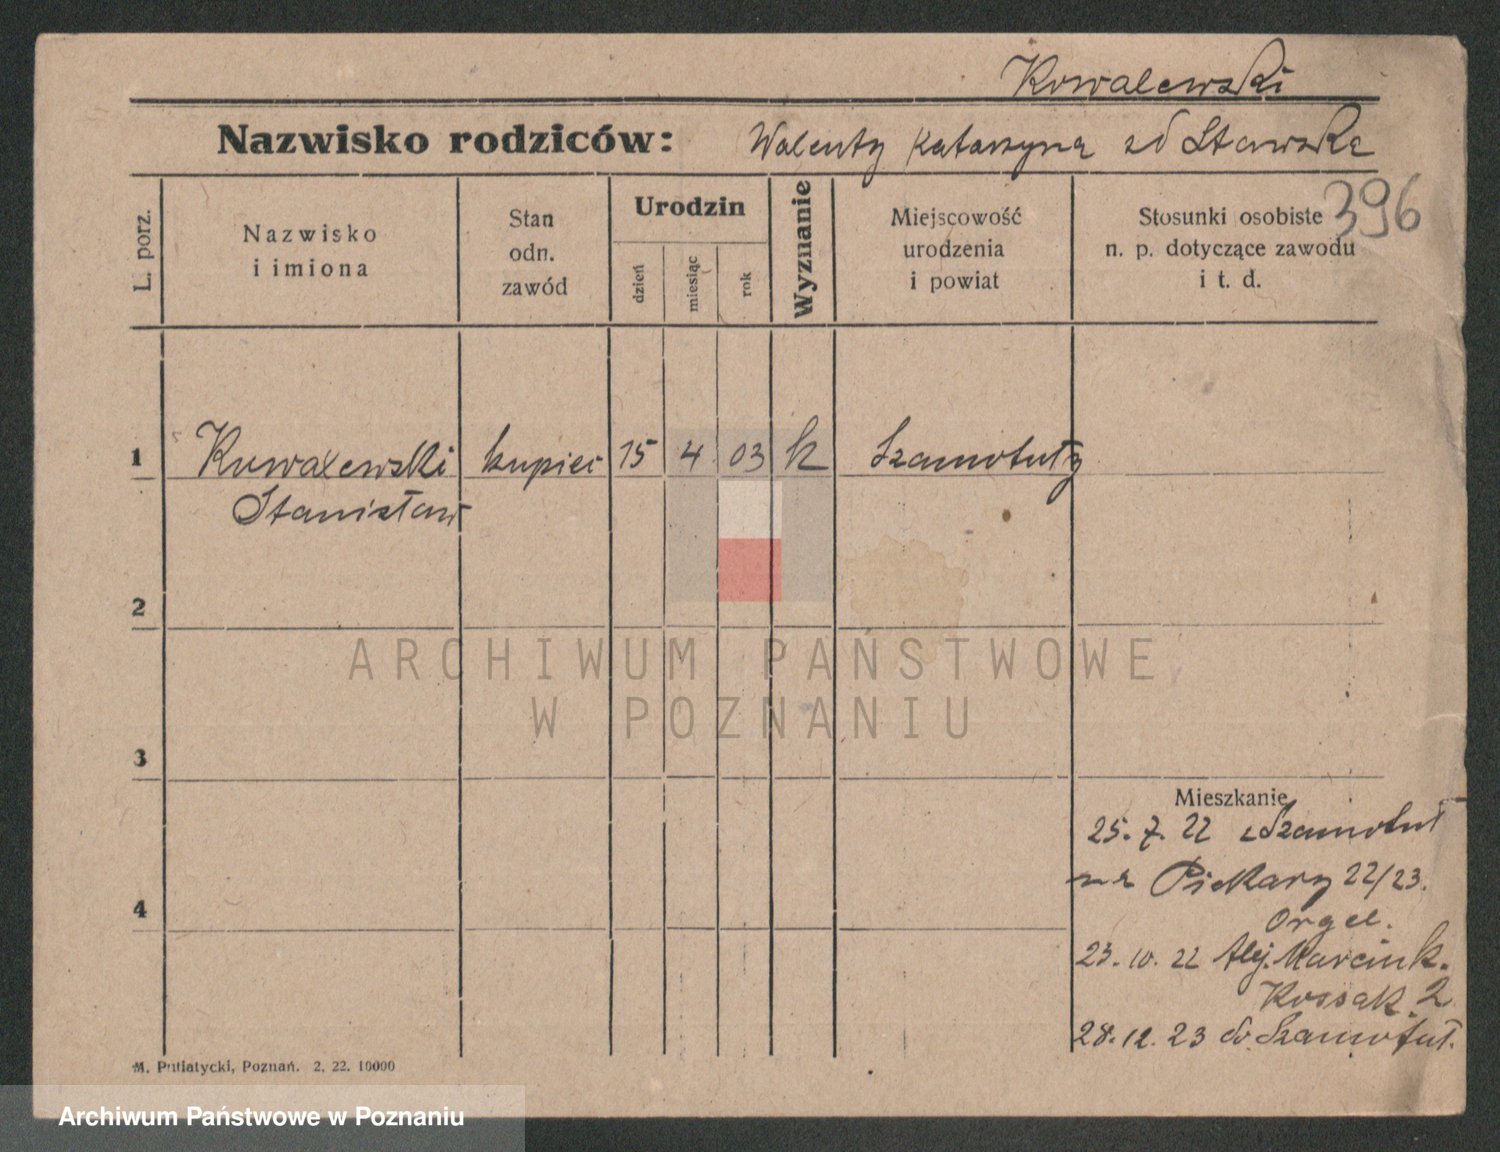 Kowalewski
Nazwisko rodziców: Walenty Katarzyna zd Stawska
396
L. porz.
Nazwisko
i imiona
Stan
odn.
zawód
Urodzin
dzień
miesiąc
rok
Wyznanie
Miejscowość
urodzenia
i powiat
Stosunki osobiste
n. p. dotyczące zawodu
i t. d.
1 Kowalewski kupiec 15 4 03 k Szamotuły
Stanisław
2
ARCHIWUM PAŃSTWOWE
W POZNANIU
3
Mieszkanie
25. 7. 22 z Szamotuł
na Piekary 22/23.
Orgel.
4
23. 10. 22 Alej. Marcink.
Kossak. 2
28. 12. 23 do Szamotuł.
M. Putiatycki, Poznań. 2, 22. 10000
Archiwum Państwowe w Poznaniu